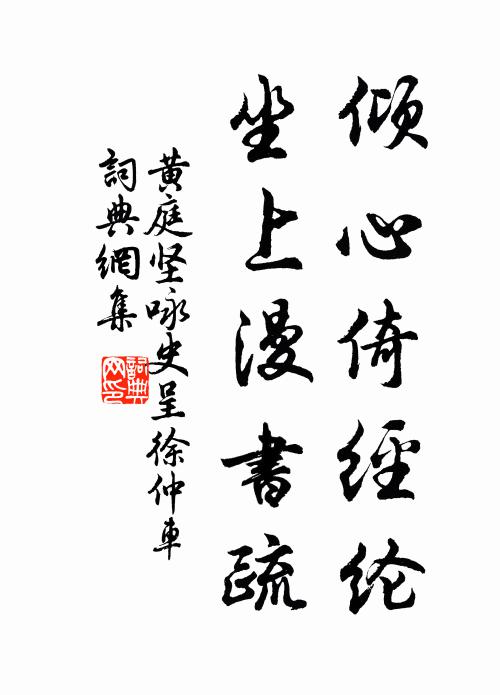 倾心倚經纶
坐上漫書疏
黄庭坚咏史呈徐仲車
詞典網集
詞典网印